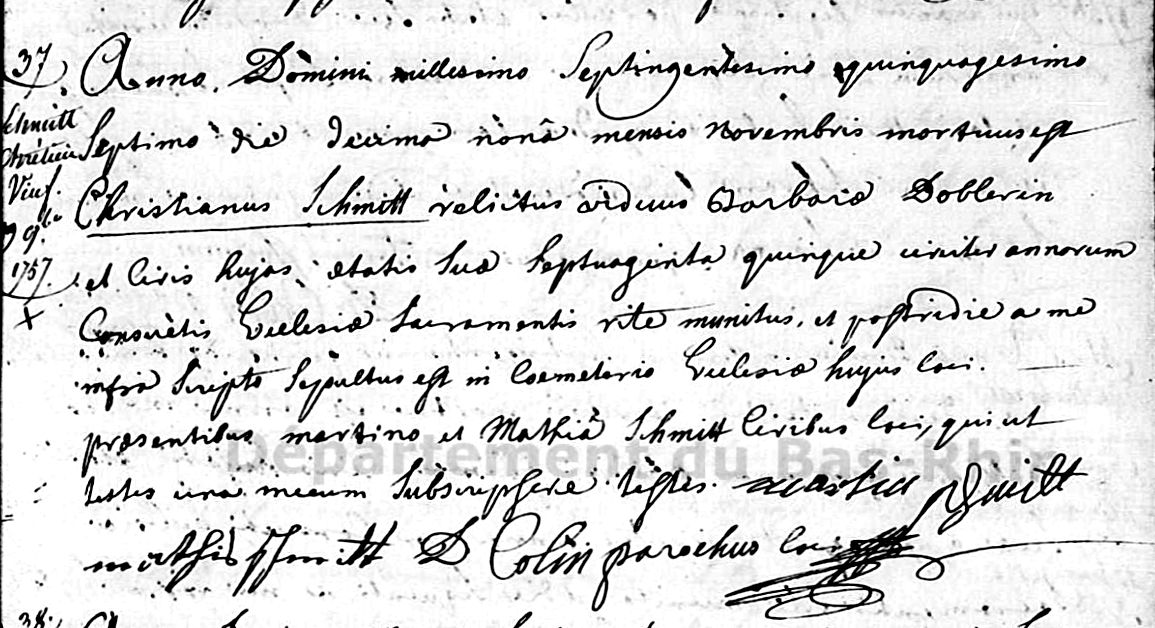 37.
Schmitt
Chrétien
Veuf.
9.bre
1757.
Anno Domini millesimo Septingentesimo quinquagesimo
Septimo die decima nonâ mensis Novembris mortuus est
Christianus Schmitt relictus viduus Barbaræ Doblerin
et Civis hujas ætatis suæ Septuaginta quinque circiter annorum
Consuetis Ecclesiæ Sacramentis rite munitus, et postridie a me
infra scripto sepultus est in Coemeterio Ecclesiæ hujus loci.
præsentibus martino et Mathiâ Schmitt Civibus loci, qui ut
testes una mecum Subscripsere testes. martin Schmitt
mathis schmitt D Colin parochus loci
Département du Bas-Rhin
38.